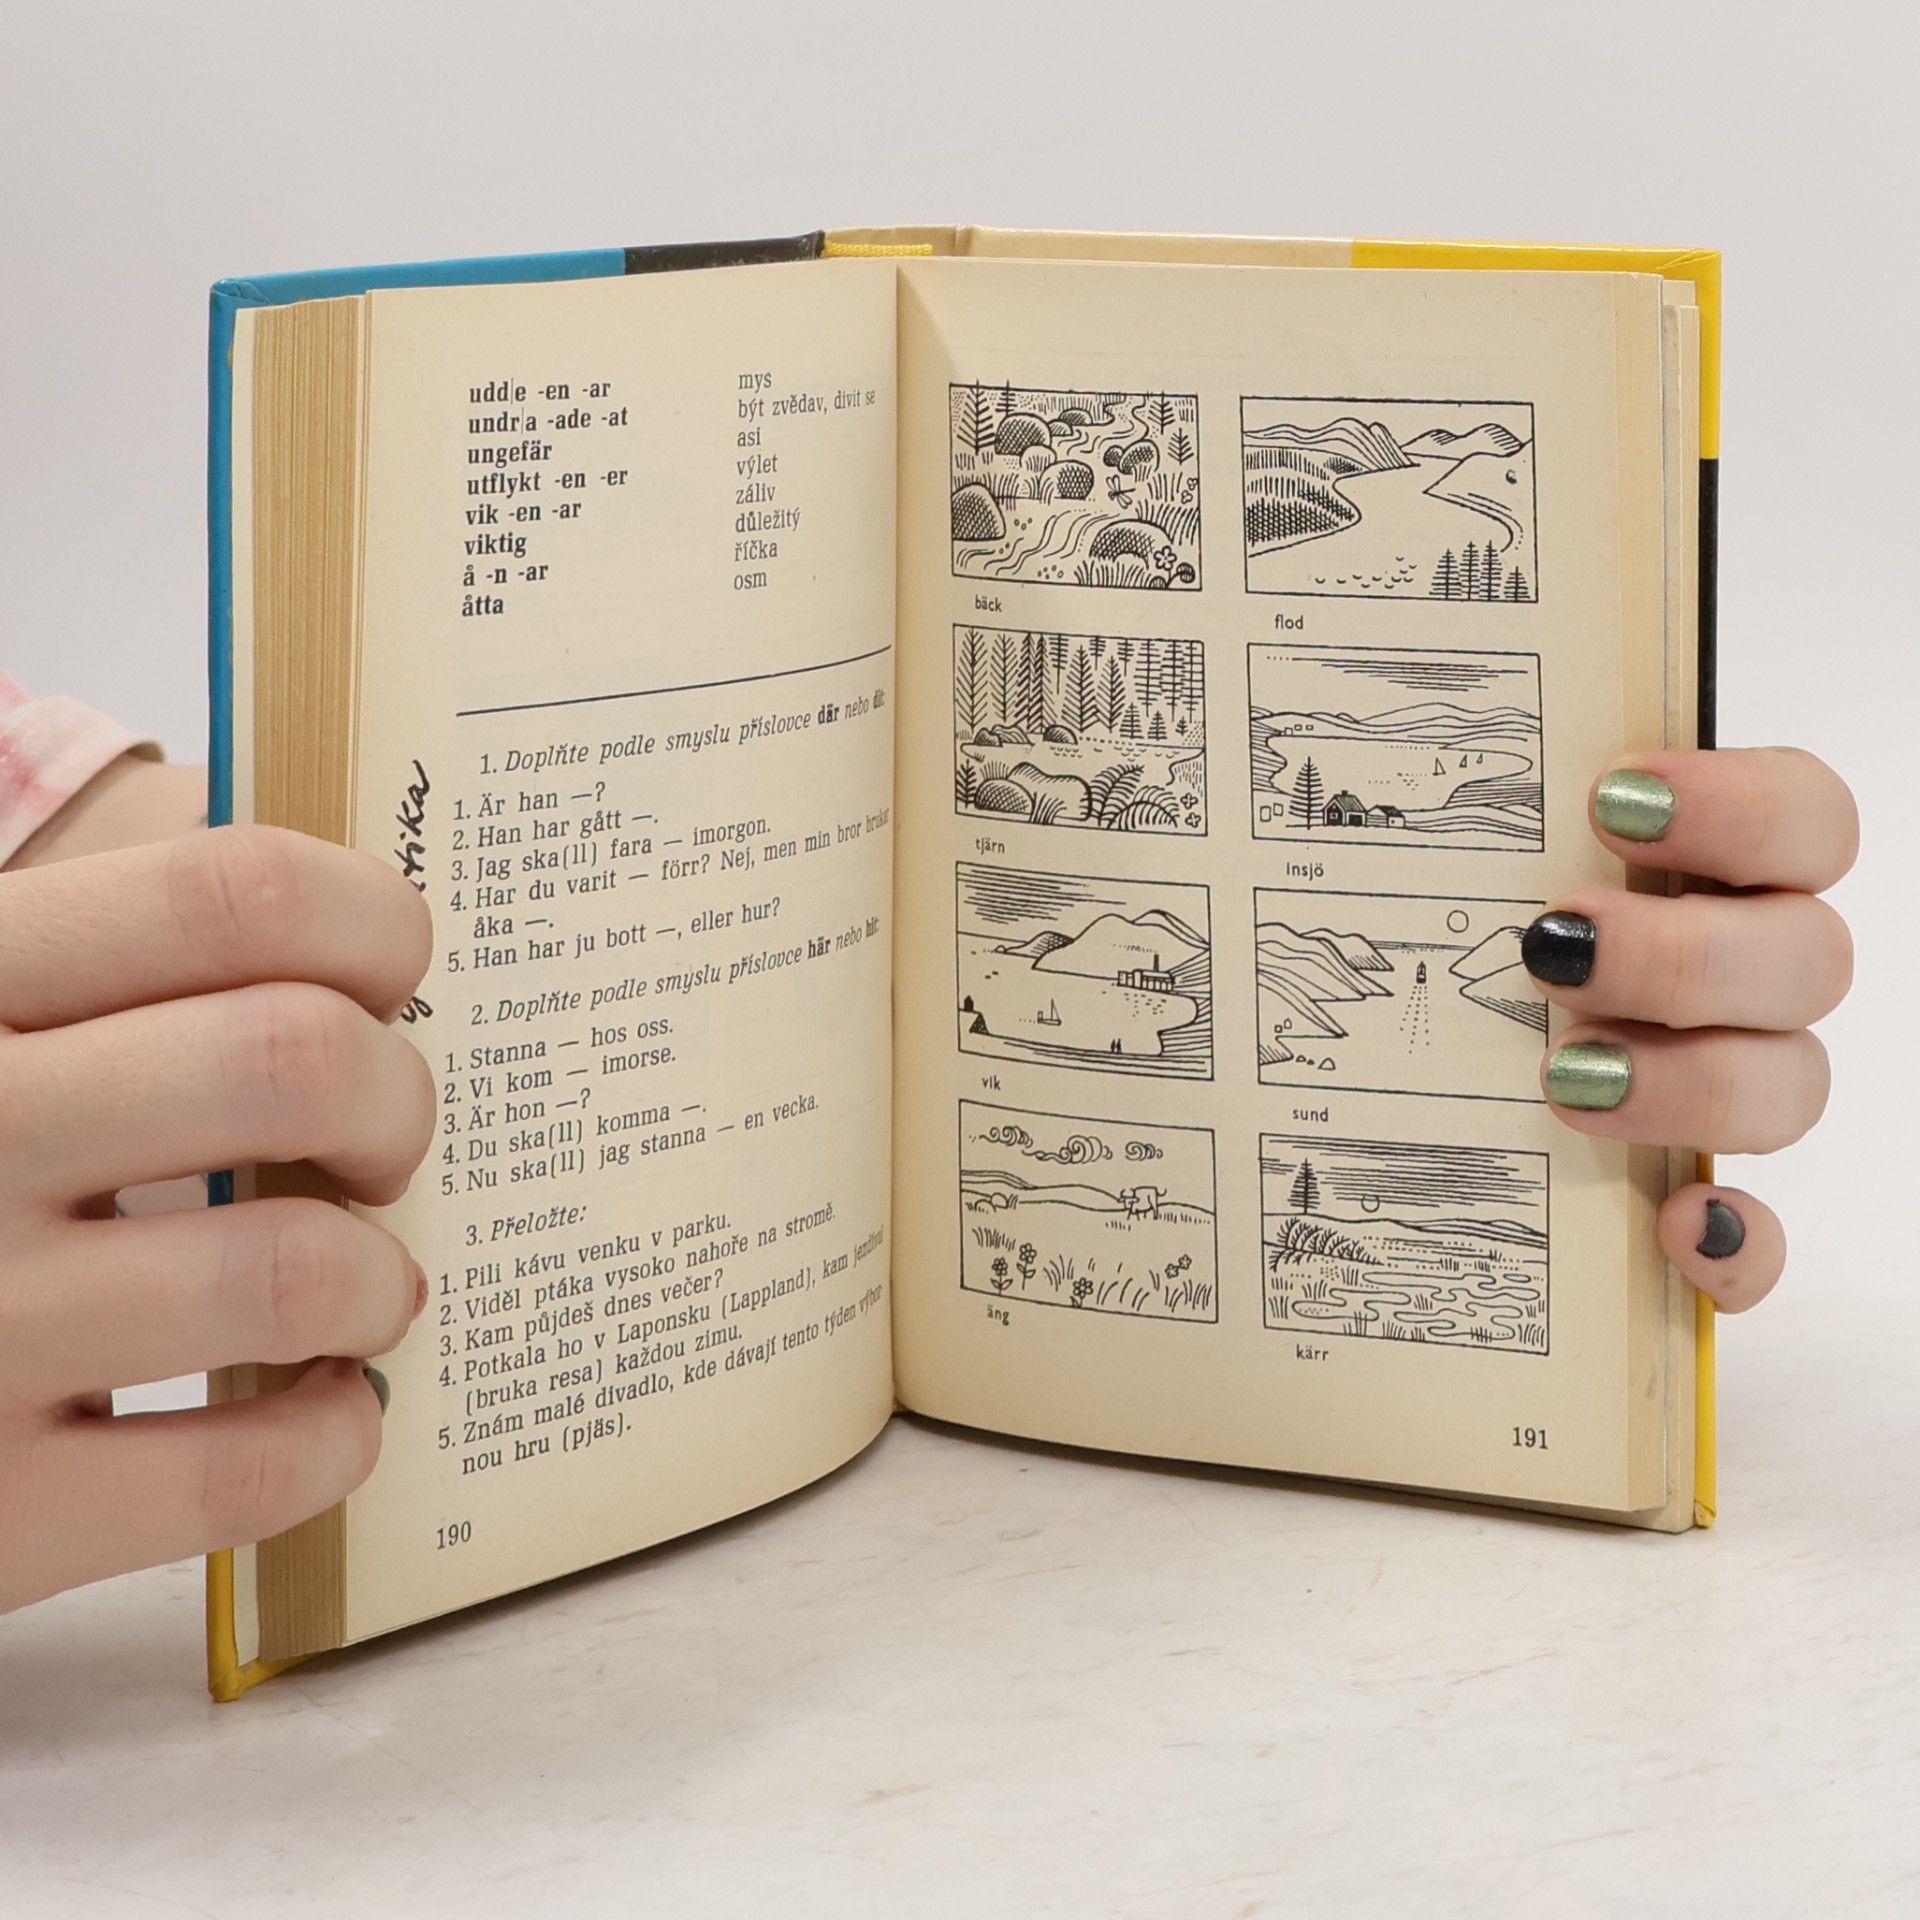 udd|e -en -ar mys
undr|a -ade -at být zvědav, divit se
ungefär asi
utflykt -en -er výlet
vik -en -ar záliv
viktig důležitý
å -n -ar říčka
åtta osm
1. Doplňte podle smyslu příslovce där nebo dit:
1. Är han —?
2. Han har gått —.
3. Jag ska(ll) fara — imorgon.
4. Har du varit — förr? Nej, men min bror brukar
åka —.
5. Han har ju bott —, eller hur?
2. Doplňte podle smyslu příslovce här nebo hit:
1. Stanna — hos oss.
2. Vi kom — imorse.
3. Är hon —?
4. Du ska(ll) komma —.
5. Nu ska(ll) jag stanna — en vecka.
3. Přeložte:
1. Pili kávu venku v parku.
2. Viděl ptáka vysoko nahoře na stromě.
3. Kam půjdeš dnes večer?
4. Potkala ho v Laponsku (Lappland), kam jezdíval
(bruka resa) každou zimu.
5. Znám malé divadlo, kde dávají tento týden výbor-
nou hru (pjäs).
190
bäck
flod
tjärn
insjö
vik
sund
äng
kärr
191